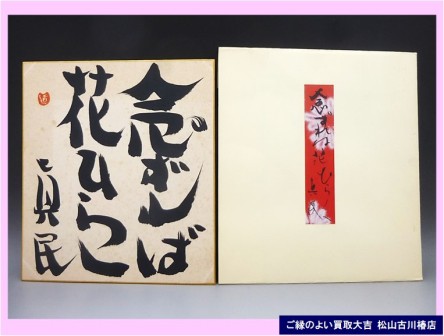 念ずれば
花ひらく
眞民
念ずれば花ひらく
眞民
ご縁のよい買取大吉 松山古川椿店